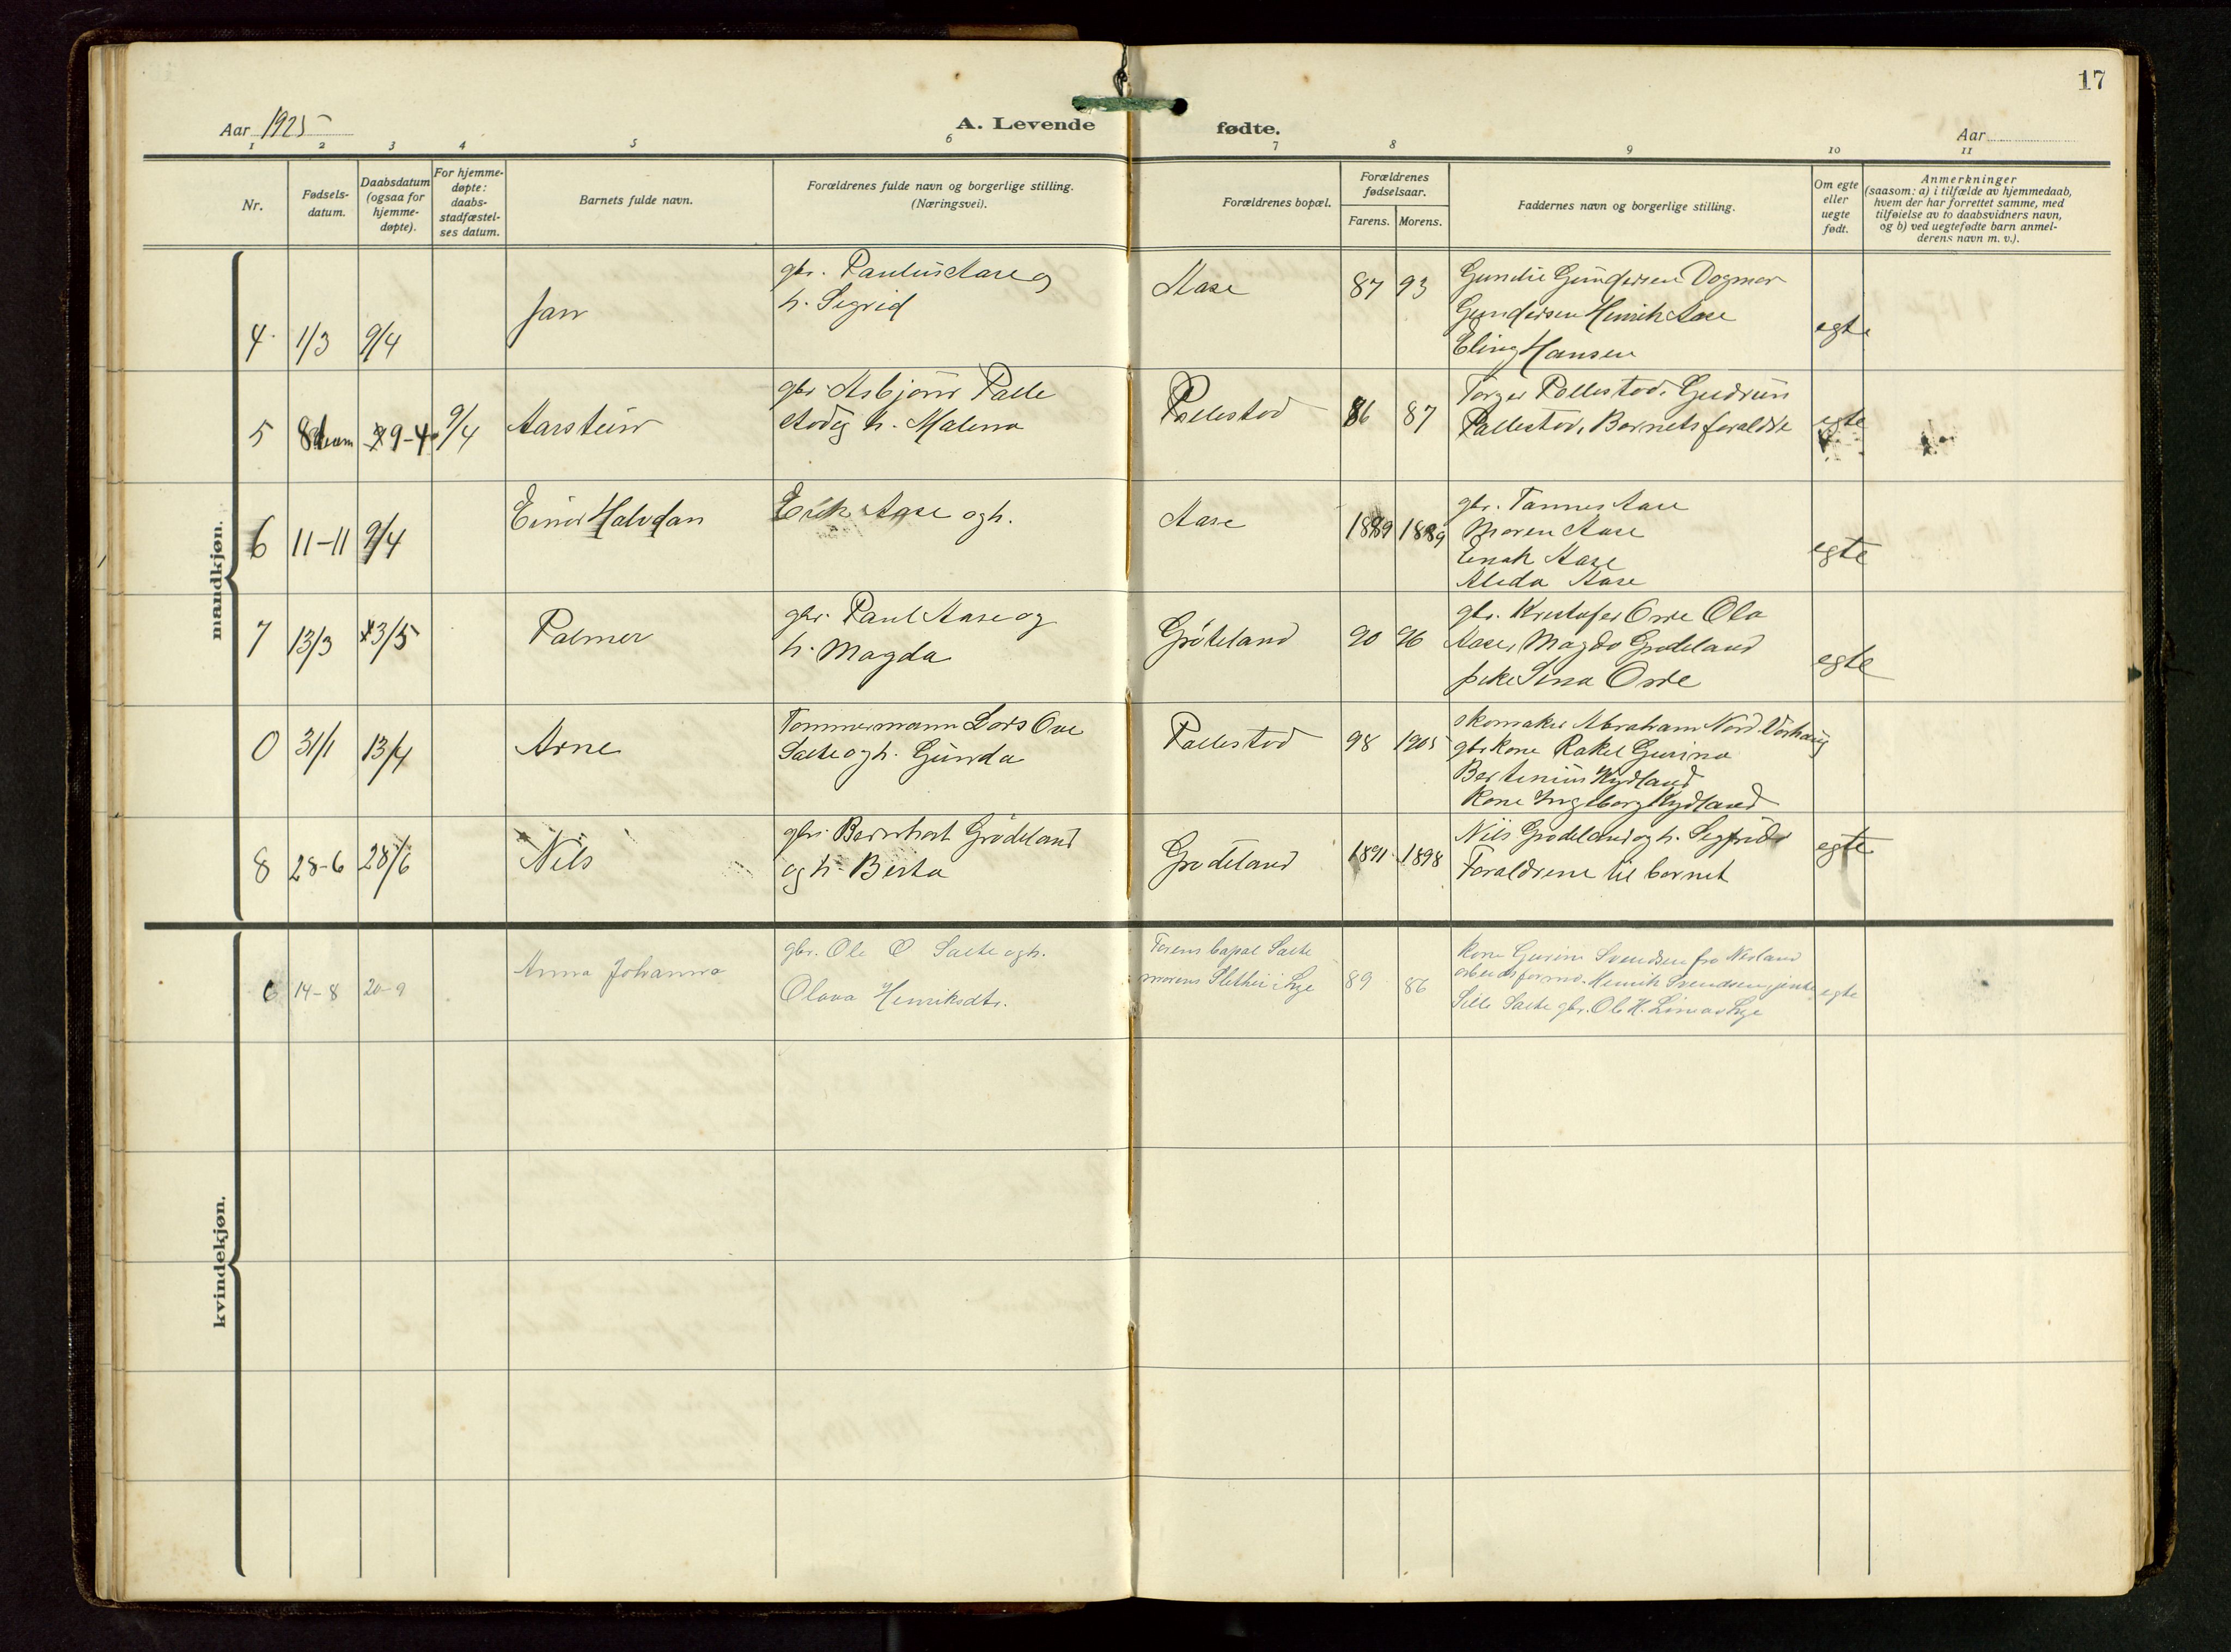 17
Aar 1925
A. Levende fødte.
Aar
1 2 3 4 5 6 7 8 9 10 11
Nr.
Fødsels-
datum.
Daabsdatum
(ogsaa for
hjemme-
døpte).
For hjemme-
døpte:
daabs-
stadfæstel-
ses datum.
Barnets fulde navn.
Forældrenes fulde navn og borgerlige stilling.
(Næringsvei).
Forældrenes bopæl.
Forældrenes
fødselsaar.
Farens. Morens.
Faddernes navn og borgerlige stilling.
Om egte
eller
uegte
født.
Anmerkninger
(saasom: a) i tilfælde av hjemmedaab,
hvem der har forrettet samme, med
tilføielse av to daabsvidners navn,
og b) ved uegtefødte barn anmel-
derens navn m. v.).
mandkjøn.
4 1/3 9/4
Jan
gbr. Paulus Aase og
h. Sigrid
Aase
87 93
Gundersen Dagmar
Gundersen Henrik Aase
Eling Hansen
egte
5 9-4 9/4
Aarstein
gbr. Asbjørn Palle
stad og h. Malena
Pallestad
86 87
Torger Pallestad, Gudrun
Pallestad, Barnets foraldre
egte
6 11-11 9/4
Einar Halvdan
Erik Aase og h.
Aase
1889 1889
gbr. Tønnes Aase
Maren Aase
Enok Aase
Alida Aase
egte
7 13/3 3/5
Palmer
gbr. Paul Aase og
h. Magda
Grödeland
90 96
gbr. Kristofer Orre Ola
Aase, Magda Grødeland
pike Sina Orre
egte
0 31/1 13/4
Arne
Tømmermann Lars Ove
Salte og h. Gunda
Pallestad
98 1905
skomaker Abraham Nord Varhaug
gbr kone Rakel Gurina
Bertinius Kydland
Kone Ingeborg Kydland
8 28-6 28/6
Nils
gbr. Bernhart Grödeland
og h. Berta
Grødeland
1891 1898
Nils Grødeland og h. Sigfrid
Foraldrene til barnet
egte
kvindekjøn.
6 14-8 20-9
Anna Johanna
gbr. Ole O Salte og h.
Olava Henriksdtr.
Farens bopæl Salte
morens Slethei i Lye
89 86
Kone Gurine Svendsen fra Nærland
arbeidsformd. Henrik Svendsen, jente
Sille Salte gbr. Ole H. Line av Lye
egte